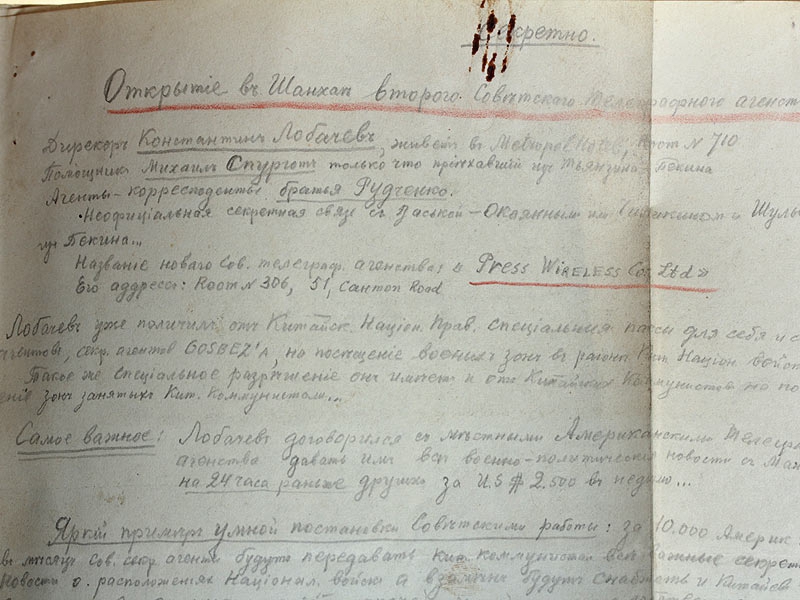 Секретно.
Открытіе въ Шанхаѣ второго Совѣтскаго Телеграфного агенст
Директоръ Константинъ Лобачевъ, живетъ въ Metropol Hotel, Room N 710
Помощникъ Михаилъ Спурготъ только что пріѣхавшій изъ Тьянзина Пекина
Агенты-корреспонденты братья Рудченко.
Неофиціальная секретная связь съ Васькой-Окаяннымъ или и Шуль
изъ Пекина...
Названіе новаго Сов. телеграф. агенства: « Press Wireless Co. Ltd »
Его адресъ: Room N 306, 51, Canton Road
Лобачевъ уже получилъ отъ Китайск. Націон. Прав. спеціальныя пасы для себя и с
секр. агентовъ GOSBEZ'A, на посѣщеніе военныхъ зонъ въ районѣ Кит. Націон. войск
Такое же спеціальное разрѣшеніе онъ имѣетъ и отъ Китайскихъ Коммунистовъ на по
еніе зонъ занятыхъ Кит. Коммунистами...
Самое важное: Лобачевъ договорился съ мѣстными Американскими Телегра
агенства давать имъ всѣ военно-политическія новости съ Ма
на 24 часа раньше другихъ за US $ 2.500 въ недѣлю...
Яркій примѣръ умной постановки Совѣтскими работы: за 10.000 Америк.
въ мѣсяцъ сов. секр. агенты будутъ передавать кит. коммунистамъ всѣ важные секрет
новости о расположеніяхъ Націонал. войскъ а взамѣнъ будутъ снабжать и Китайск